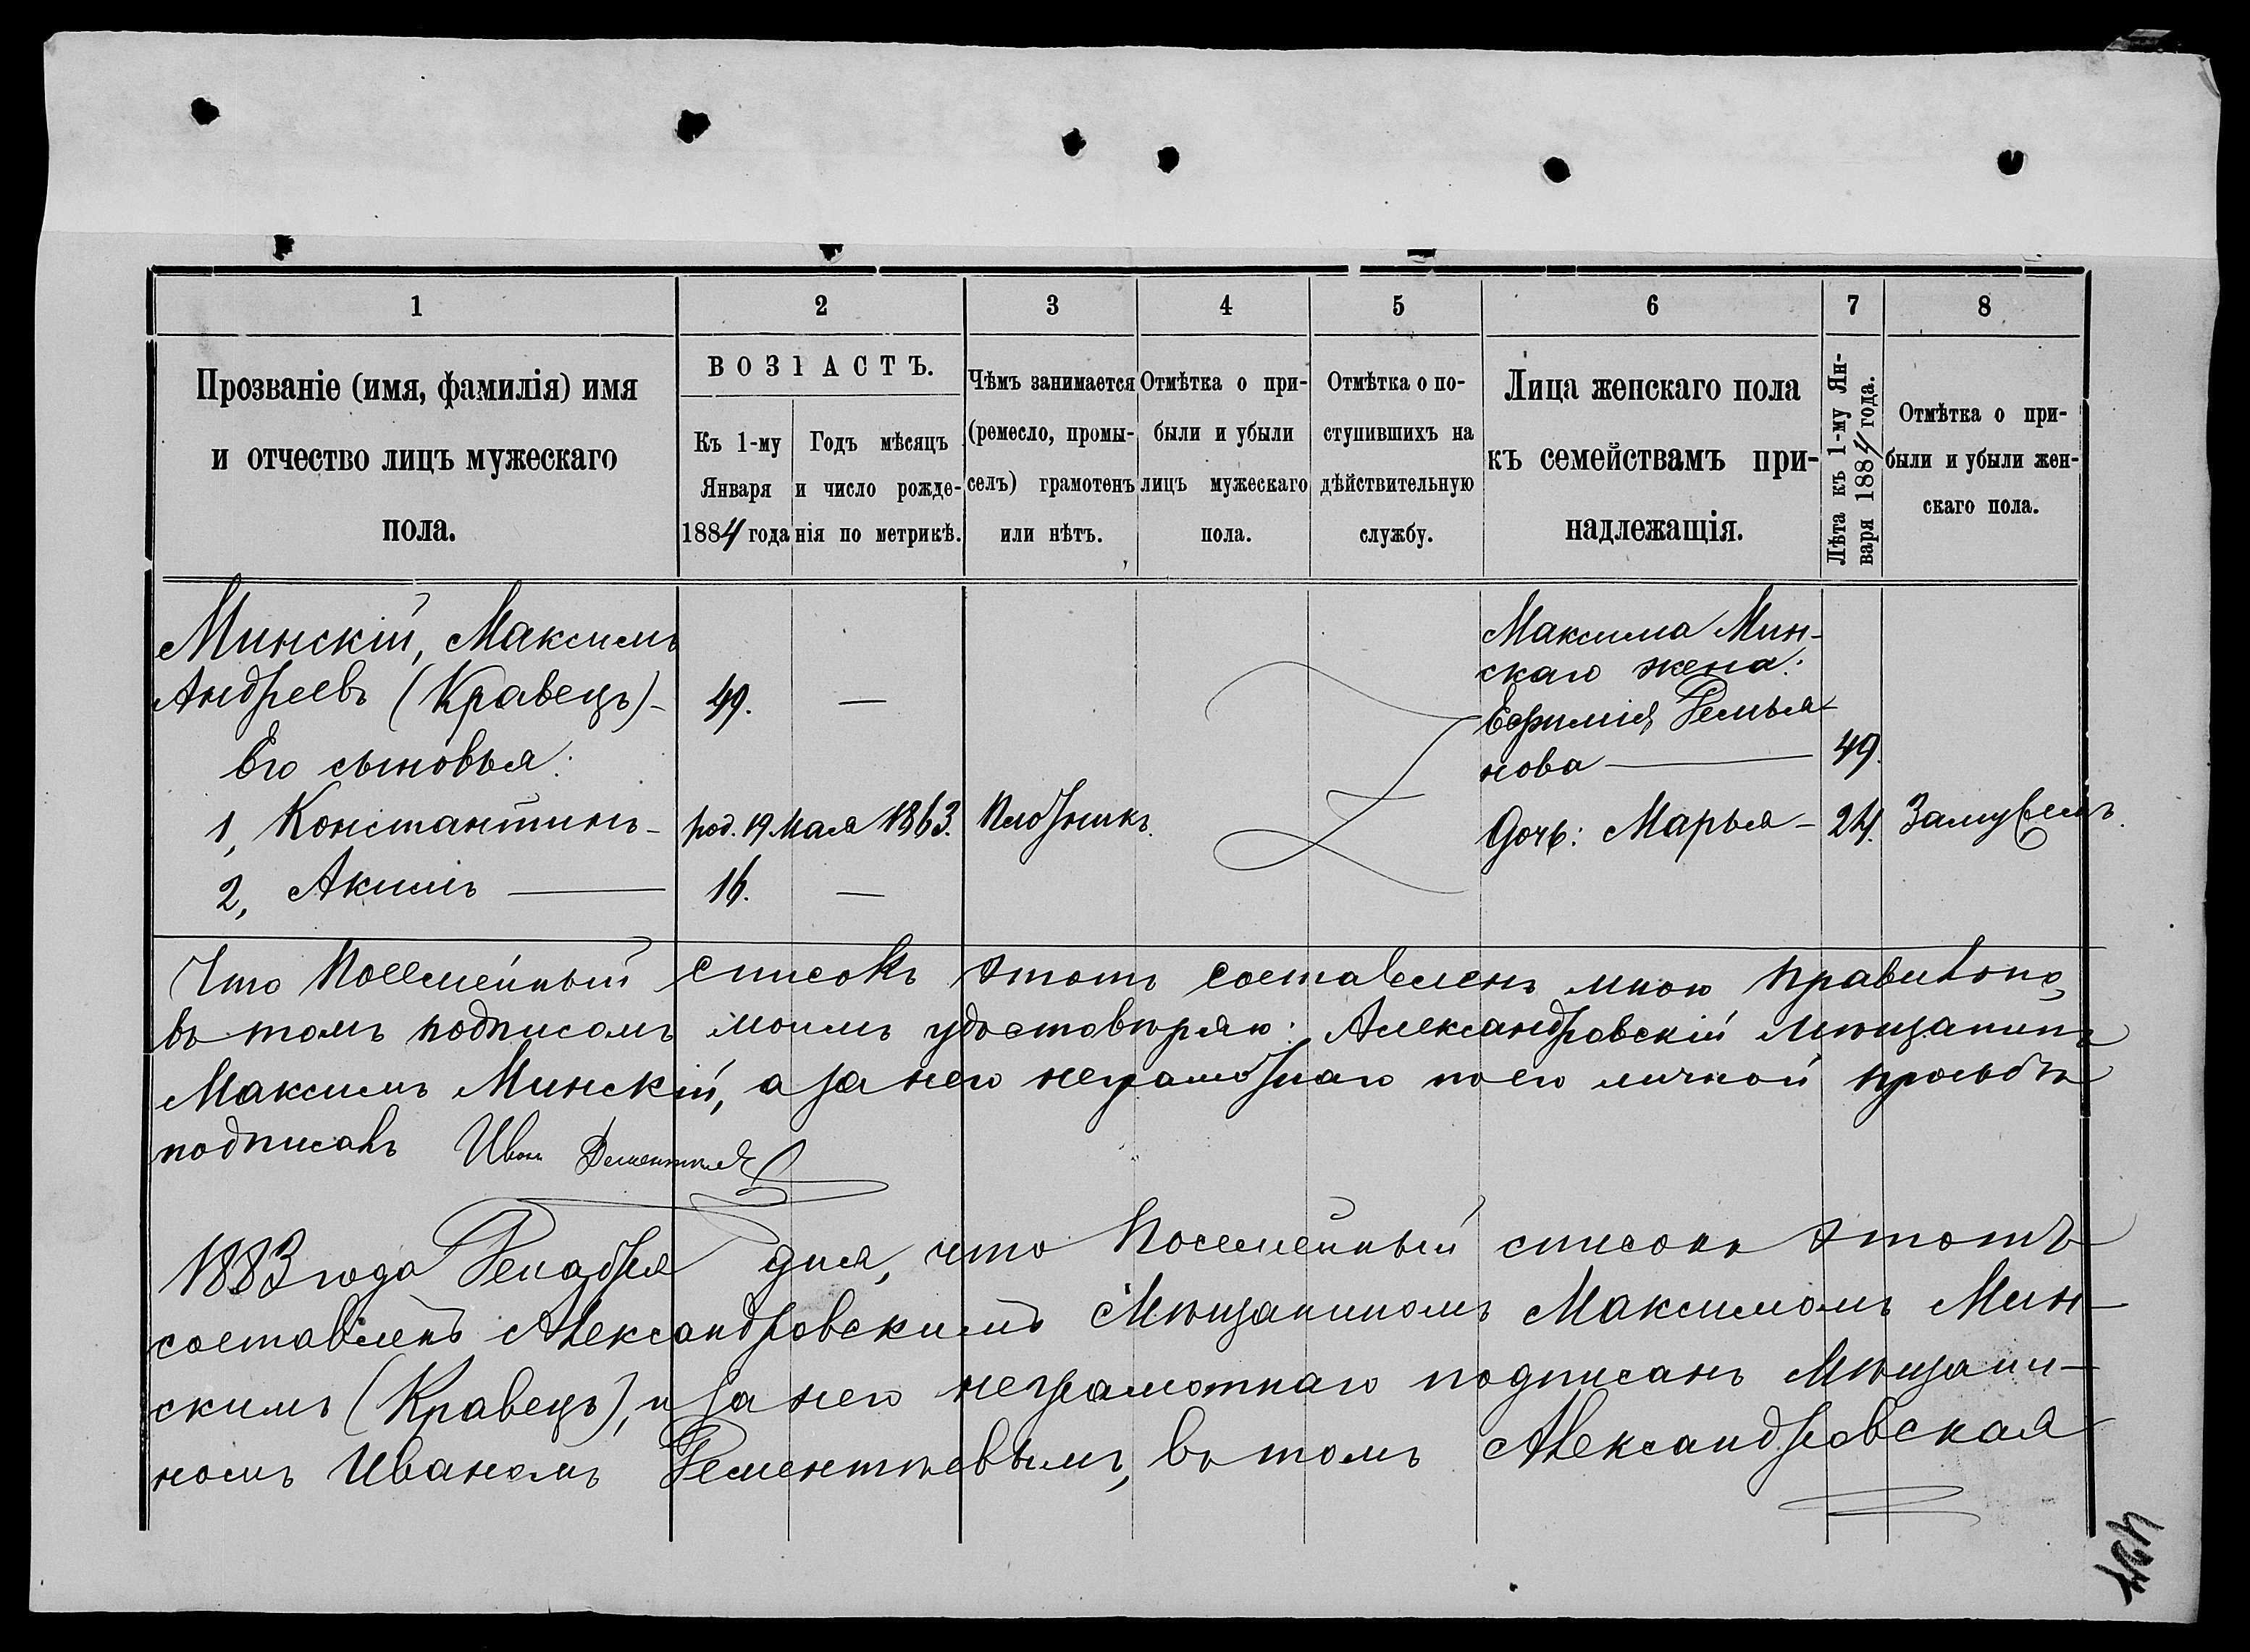 1 2 3 4 5 6 7 8
Прозваніе (имя, фамилія) имя
и отчество лицъ мужескаго
пола.
ВОЗРАСТЪ.
Къ 1-му
Января
1884 года
Годъ мѣсяцъ
и число рожде-
нія по метрикѣ.
Чѣмъ занимается
(ремесло, промы-
селъ) грамотенъ
или нѣтъ.
Отмѣтка о при-
были и убыли
лицъ мужескаго
пола.
Отмѣтка о по-
ступившихъ на
дѣйствительную
службу.
Лица женскаго пола
къ семействамъ при-
надлежащія.
Лѣта къ 1-му Ян-
варя 1884 года.
Отмѣтка о при-
были и убыли жен-
скаго пола.
Минскій, Максимъ
Андреевъ (Кравецъ) - 49. —
Его сыновья:
1, Константинъ - род. 19 Мая 1863. Плотникъ.
2, Акимъ — 16. —
Максима Мин-
скаго жена:
Ефимія Демья-
нова — 49.
Дочь: Марья - 24. Замужемъ.
Что Посемейный списокъ этотъ составленъ мною правильно,
въ томъ подписомъ моимъ удостовѣряю: Александровскій мѣщанинъ
Максимъ Минскій, а за него неграмотнаго по его личной просьбѣ
подписалъ Иванъ Дементьевъ
1883 года Декабря дня, что Посемейный списокъ этотъ
составленъ Александровскимъ Мѣщаниномъ Максимомъ Мин-
скимъ (Кравецъ), и за него неграмотнаго подписанъ Мѣщани-
номъ Иваномъ Дементьевымъ, въ томъ Александровская